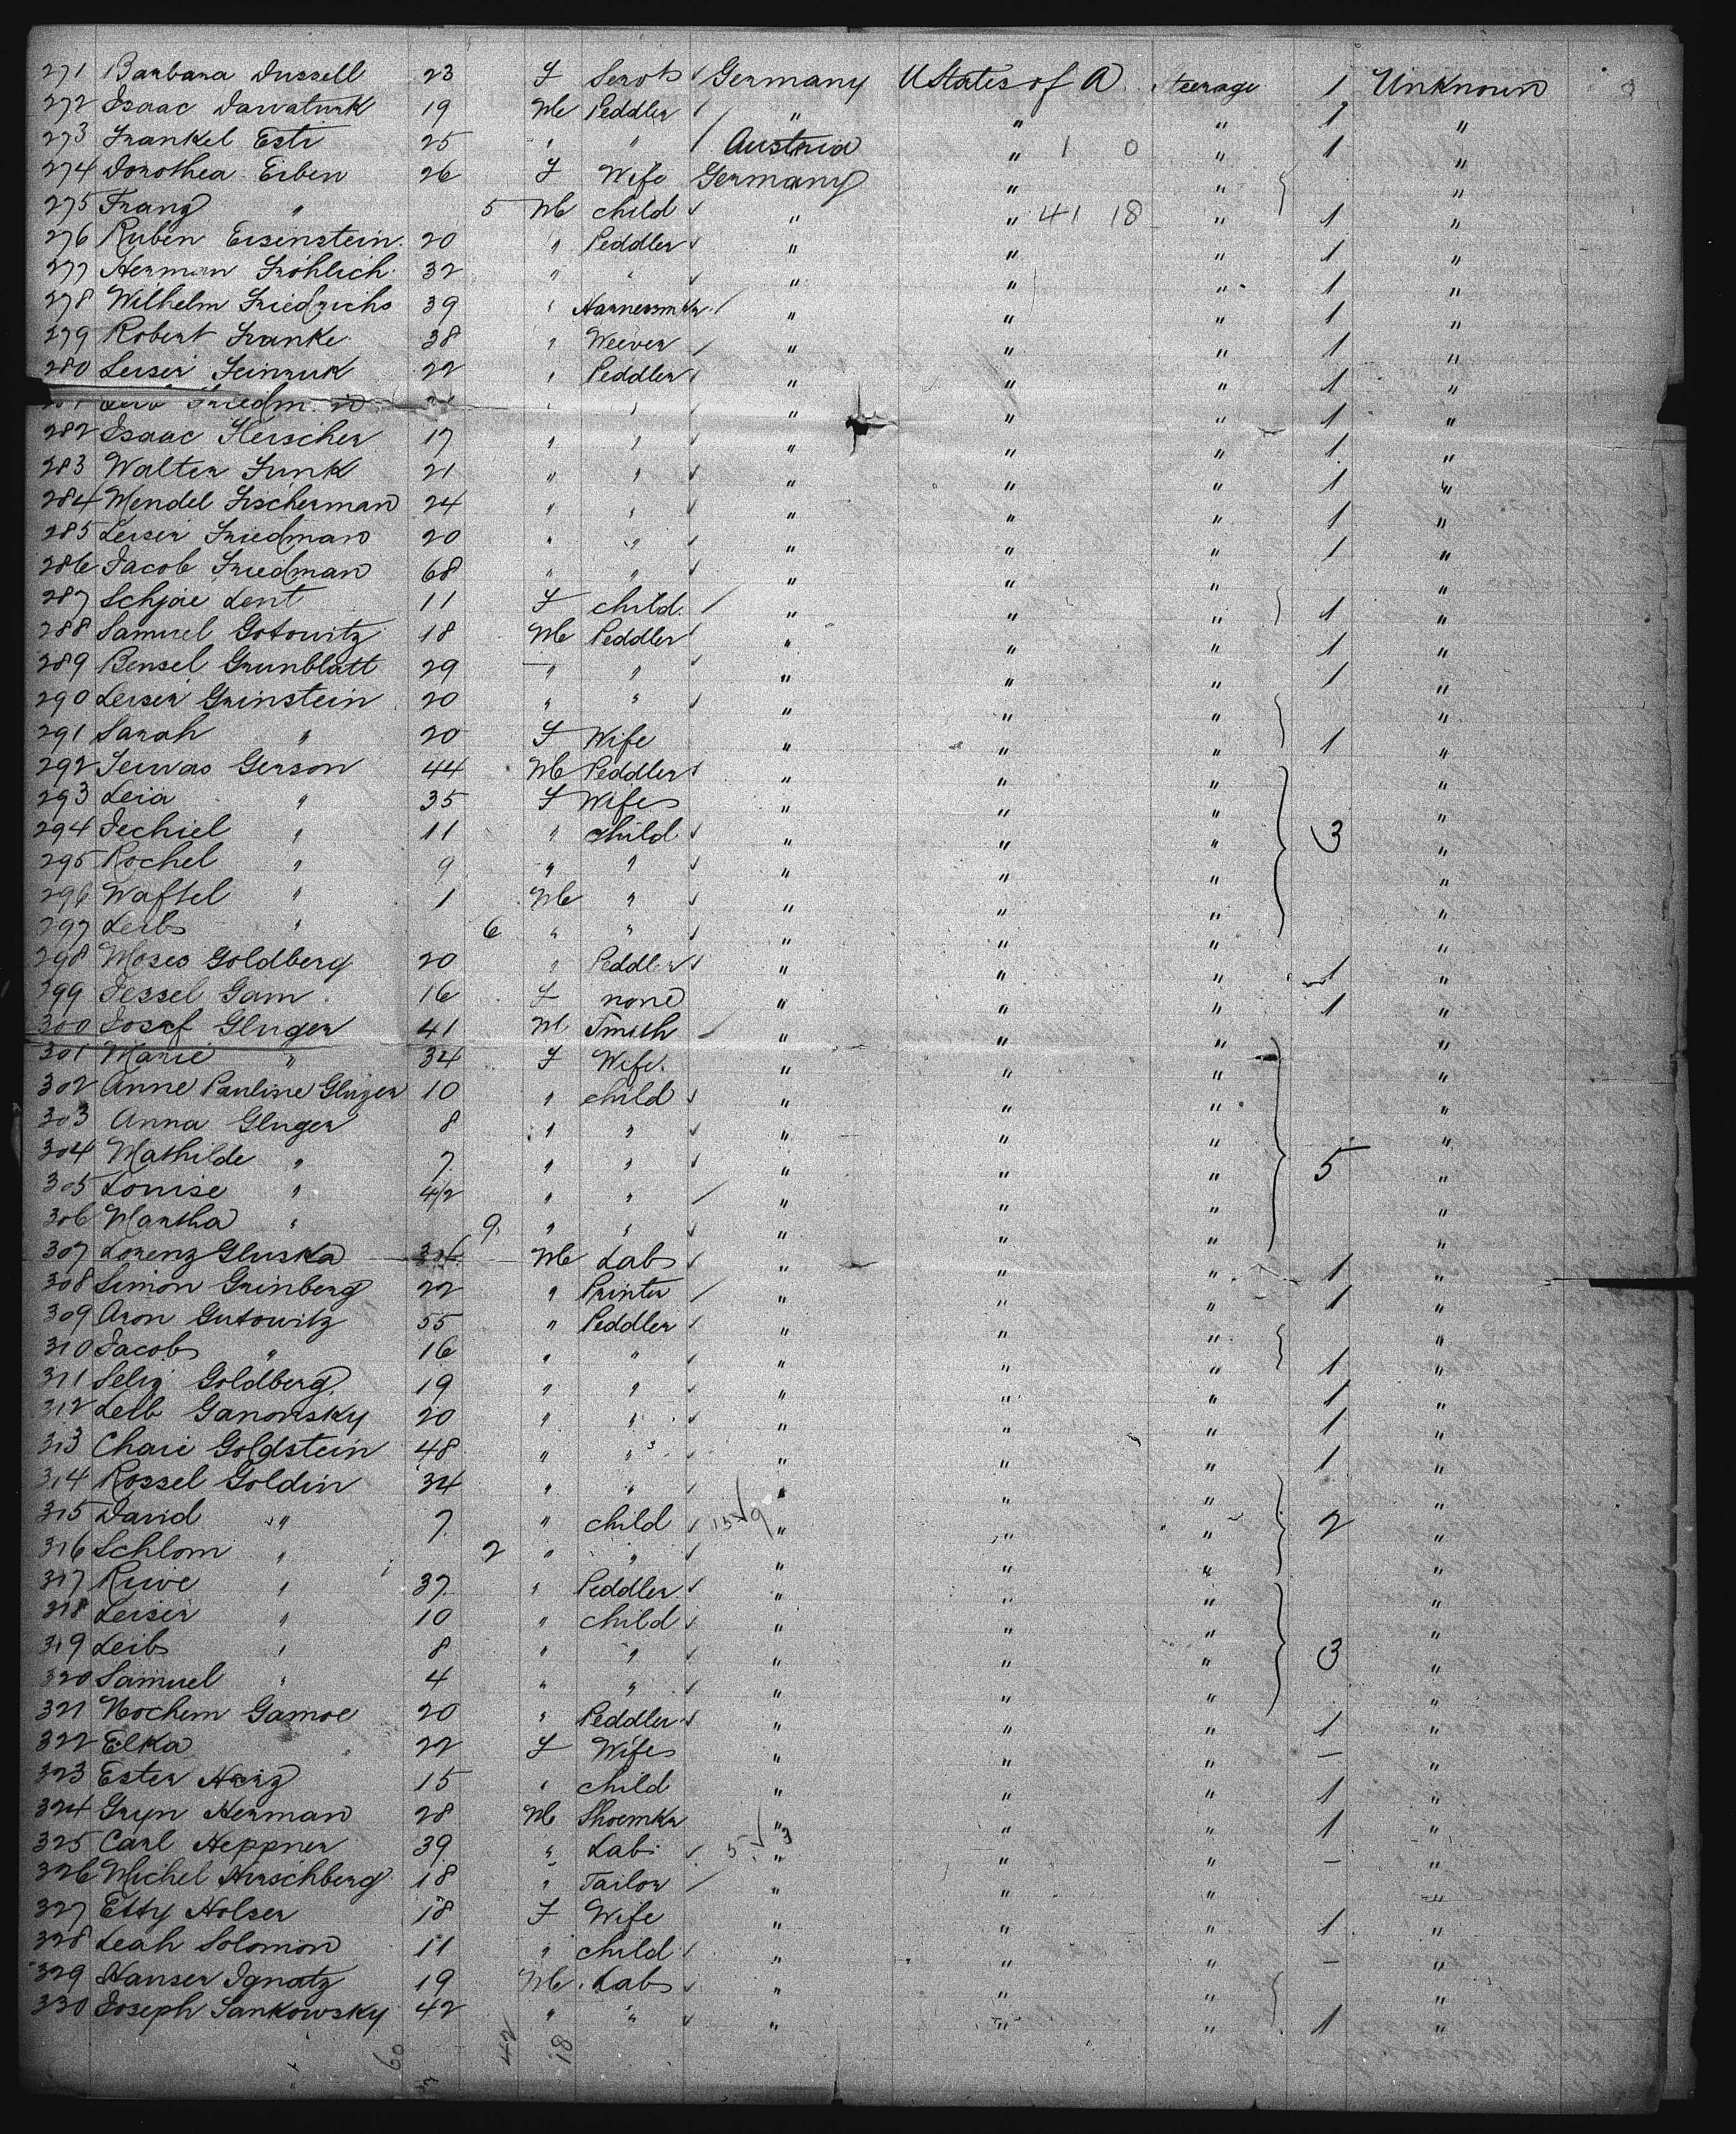 271 Barbara Dussell 23 F Servt Germany U States of A. Steerage 1 Unknown
272 Isaac Darvaturk 19 M Peddler " " " 1 "
273 Frankel Esti 25 " " Austria " 1 0 " 1 "
274 Dorothea Erben 26 F Wife Germany " " "
275 Franz " 5 M child " " 41 18 " 1 "
276 Ruben Eisenstein 20 " Peddler " " " 1 "
277 Herman Fröhlich 32 " " " " " 1 "
278 Wilhelm Friedrichs 39 " Harnessmkr " " " 1 "
279 Robert Franke 38 " Weever " " " 1 "
280 Leiser Feinruk 22 " Peddler " " " 1 "
" " " " " 1 "
282 Isaac Fleischer 17 " " " " " 1 "
283 Walter Funk 21 " " " " " 1 "
284 Mendel Fischerman 24 " " " " " 1 "
285 Leiser Friedman 20 " " " " " 1 "
286 Jacob Friedman 68 " " " " " "
287 Schjae Lent 11 F child " " " 1 "
288 Samuel Gotowitz 18 M Peddler " " " 1 "
289 Bensel Grunblatt 29 " " " " " 1 "
290 Leiser Grinstein 20 " " " " " "
291 Sarah " 20 F Wife " " " 1 "
292 Gerson 44 M Peddler " " " "
293 Leia " 35 F Wife " " " "
294 Jechiel " 11 " child " " " 3 "
295 Rochel " 9 " " " " " "
296 Waffel " 1 M " " " " "
297 Leib " 6 " " " " " "
298 Moses Goldberg 20 " Peddler " " " 1 "
299 Jessel Gam 16 F none " " " 1 "
300 Josef Gluger 41 M Smith " " " "
301 Marie " 34 F Wife " " " "
302 Anne Pauline Gluger 10 " child " " " "
303 Anna Gluger 8 " " " " " "
304 Mathilde " 7 " " " " " 5 "
305 Louise " 4/2 " " " " " "
306 Martha " 9 " " " " " "
307 Lorenz Gluska M Lab " " " 1 "
308 Simon Grinberg 22 " Printer " " " 1 "
309 Aron Gutowitz 55 " Peddler " " " "
310 Jacob " 16 " " " " " 1 "
311 Selig Goldberg 19 " " " " " 1 "
312 Leib Ganonsky 20 " " " " " 1 "
313 Chaie Goldstein 48 " " " " " 1 "
314 Rossel Goldin 34 " " " " " "
315 David " 7 " child " " " 2 "
316 Schlom " 2 " " " " " "
317 Riwe " 37 " Peddler " " " "
318 Leiser " 10 " child " " " "
319 Leib " 8 " " " " " 3 "
320 Samuel " 4 " " " " " "
321 Nochem Gamoe 20 " Peddler " " " 1 "
322 Elka 22 F Wife " " " — "
323 Ester Harz 15 " child " " " 1 "
324 Gryn Herman 28 M Shoemkr " " " 1 "
325 Carl Heppner 39 " Lab " " " — "
326 Michel Hirschberg 18 " Tailor " " " "
327 Etty Holser 18 F Wife " " " 1 "
328 Leah Solomon 11 " child " " " — "
329 Hanser Ignatz 19 M Lab " " " "
330 Joseph Jankowsky 42 " " " " " 1 "
60 42 18